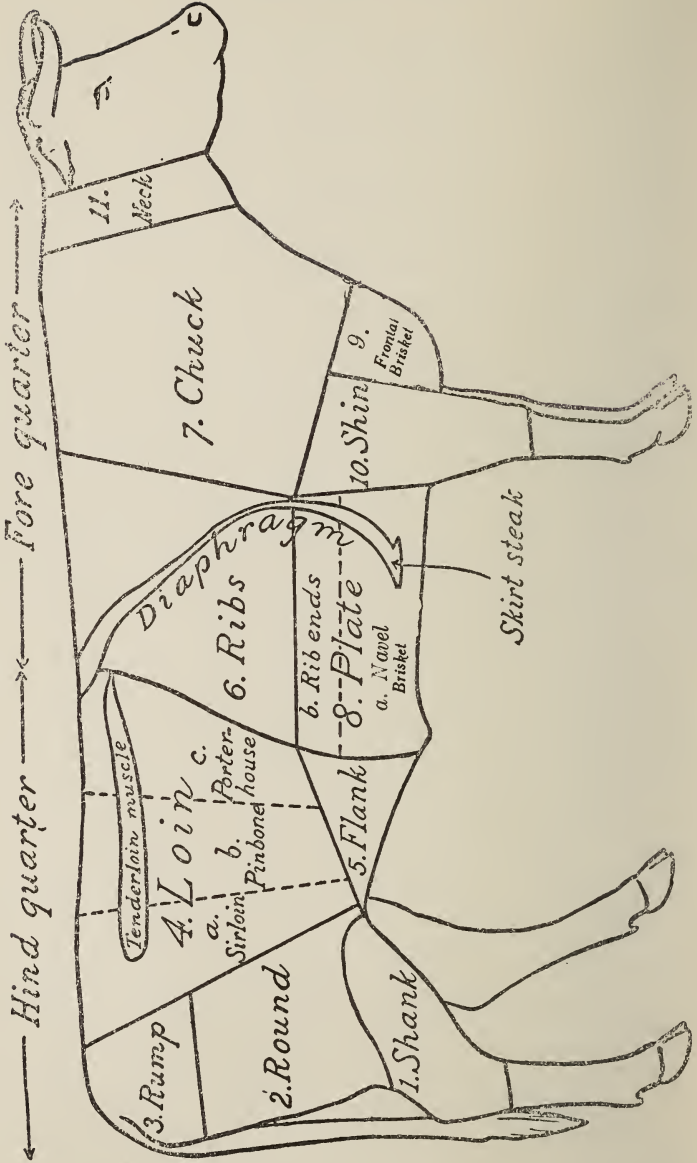 Hind quarter
Fore quarter
3. Rump
2. Round
1. Shank
Tenderloin muscle
4. Loin
a.
Sirloin
b.
Pinbone
c.
Porter-
house
5. Flank
Diaphragm
6. Ribs
b. Rib ends
8. Plate
a. Navel
Brisket
Skirt steak
7. Chuck
10. Shin
9.
Frontal
Brisket
11.
Neck